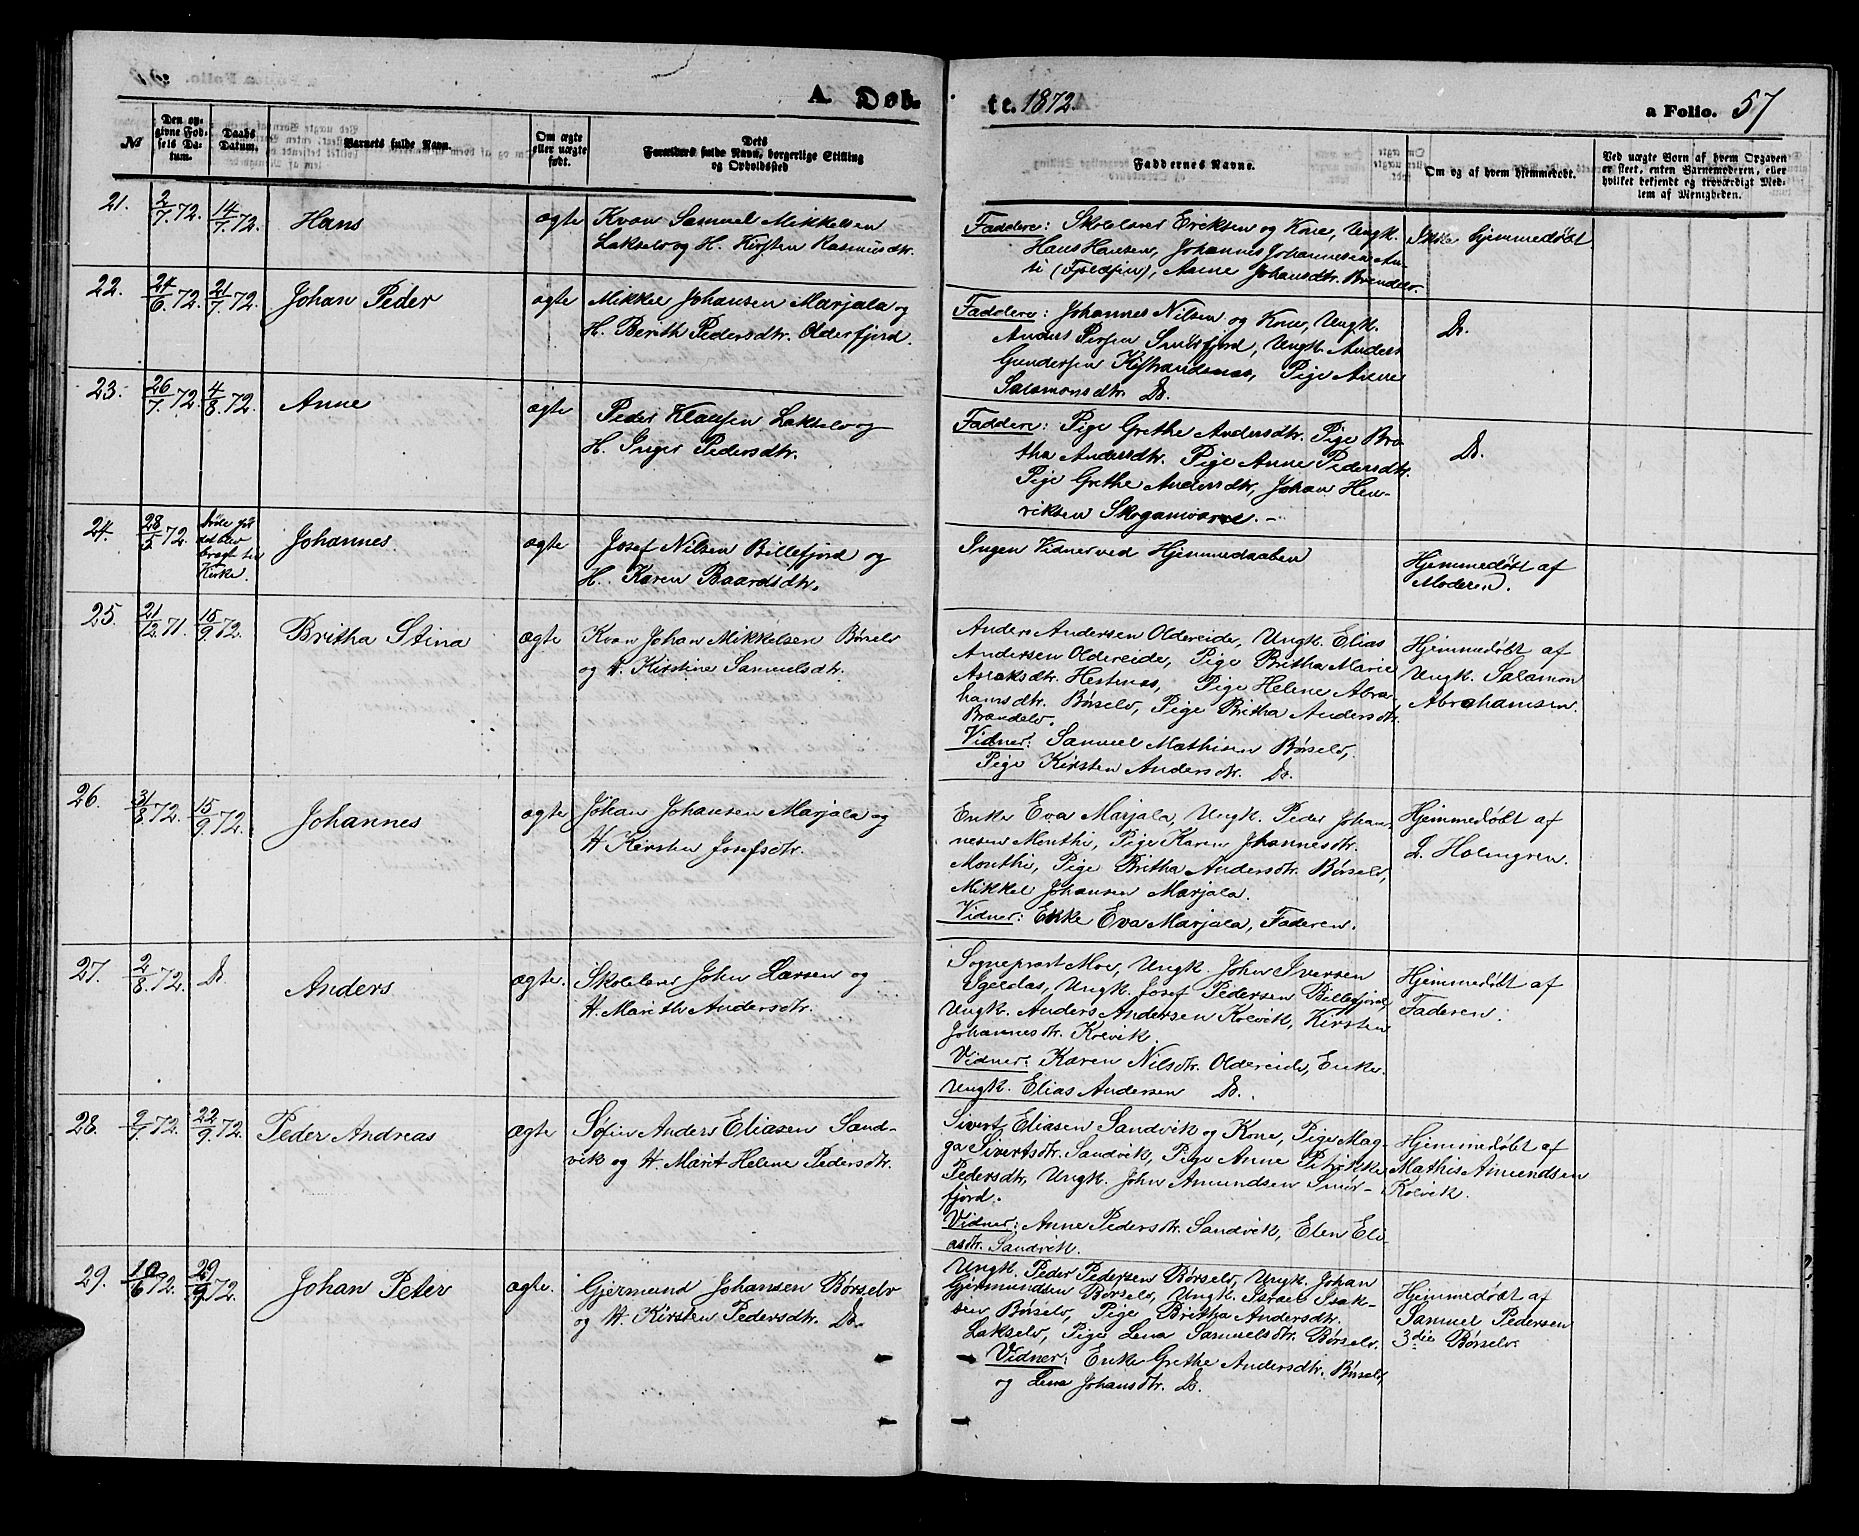 A. Døb- te. 1872. a Folio. 57
№
Den op-
givne Fød-
sels Da-
tum.
Daabs
Datum.
Barnets fulde Navn.
Om ægte
eller uægte
født.
Dets
Forældres fulde Navn, borgerlige Stilling
og Opholdssted
Faddernes Navne.
Om og af hvem hjemmedøbt.
Ved uægte Born af hvem Opgaven
er skeet, enten Barnemoderen, eller
hvilket bekjendt og troværdigt Med-
lem af Menigheden.
21. 2/7.72. 14/7.72. Hans ægte
Kvæn Samuel Mikkelsen
Lakselv og H. Kirsten Rasmusdtr.
Faddere: Skolelærer Eriksen og Kone, Ungk.
Hans Hansen, Johannes Johannesen An-
ti (Fjeldfin), Anne Johansdtr. Brændelv.
Ikke hjemmedøbt
22. 24/6.72. 21/7.72. Johan Peder ægte
Mikkel Johansen Marjala og
H. Berith Pedersdtr. Olderfjord.
Faddere: Johannes Nilsen og Kone, Ungk.
Anders Persen Smørfjord, Ungk. Anders
Gundersen Kistrandnæs, Pige Anne
Salamonsdtr. Do.
Do.
23. 26/7.72. 4/8.72. Anne ægte
Peder Klausen Lakselv og
H. Inger Pedersdtr.
Faddere: Pige Grethe Andersdtr. Pige Bri-
tha Andersdtr. Pige Anne Pedersdtr.
Pige Grethe Andersdtr, Johan Hen-
riksen Skoganvarre.-
Do.
24. 28/5.72.
det blev
bragt til
Kirke.
Johannes. ægte
Josef Nilsen Billefjord og
H. Karen Baardsdtr.
Ingen Vidner ved Hjemmedaaben
Hjemmedøbt af
Moderen.
25. 21/12.71. 15/9.72. Britha Stina ægte
Kvæn Johan Mikkelsen Børselv
og H. Kirstine Samuelsdtr.
Anders Andersen Oldereide, Ungk. Elias
Andersen Oldereide, Pige Britha Marie
Aslaksdtr. Hestenæs, Pige Helene Abra-
hamsdtr. Børselv, Pige Britha Andersdtr.
Brændelv.
Vidner: Samuel Mathisen Børselv,
Pige Kirsten Andersdtr. Do.
Hjemmedøbt af
Ungk. Salamon
Abrahamsen.
26. 31/8.72. 15/9.72. Johannes ægte
Johan Johansen Marjala og
H. Kirsten Josefsdtr.
Enke Eva Marjala, Ungk. Peder Johan-
nesen Monthi, Pige Karen Johannesdtr.
Monthi, Pige Britha Andersdtr. Børselv,
Mikkel Johansen Marjala.
Vidner: Enke Eva Marjala, Faderen.
Hjemmedøbt af
L. Holmgren.
27. 2/8.72. Do. Anders ægte.
Skolelærer John Larsen og
H. Marith Andersdtr.
Sogneprest Moe, Ungk. John Iversen
Igeldas, Ungk. Josef Pedersen Billefjord,
Ungk. Anders Andersen Kolvik, Kirsten
Johannesdtr. Kolvik.
Vidner: Karen Nilsdtr. Oldereide, Enke.
Ungk. Elias Andersen Do.
Hjemmedøbt af
Faderen.
28. 2/7.72. 22/9.72. Peder Andreas ægte
Søfin Anders Eliasen Sand-
vik og H. Marit Helene Pedersdtr.
Sivert Eliasen Sandvik og Kone, Pige Mag-
ga Sivertsdtr. Sandvik, Pige Anne Petrikke
Pedersdtr, Ungk. John Amundsen Smør-
fjord.
Vidner: Anne Pedersdtr. Sandvik, Elen Eli-
asdtr. Sandvik.
Hjemmedøbt af
Mathis Amundsen
Kolvik.
29. 10/6.72. 29/9.72. Johan Peter ægte.
Gjermund Johansen Børselv
og H. Kirsten Pedersdtr. Do.
Ungk. Peder Pedersen Børselv, Ungk. Johan
Gjermundsen Børselv, Ungk. Israel Isak-
sen Børselv, Pige Britha Andersdtr.
Lakselv, Pige Lena Samuelsdtr. Børselv.
Vidner: Enke Grethe Andersdtr. Børselv,
og Lena Johansdtr. Do.
Hjemmedøbt af
Samuel Pedersen
3die Børselv.